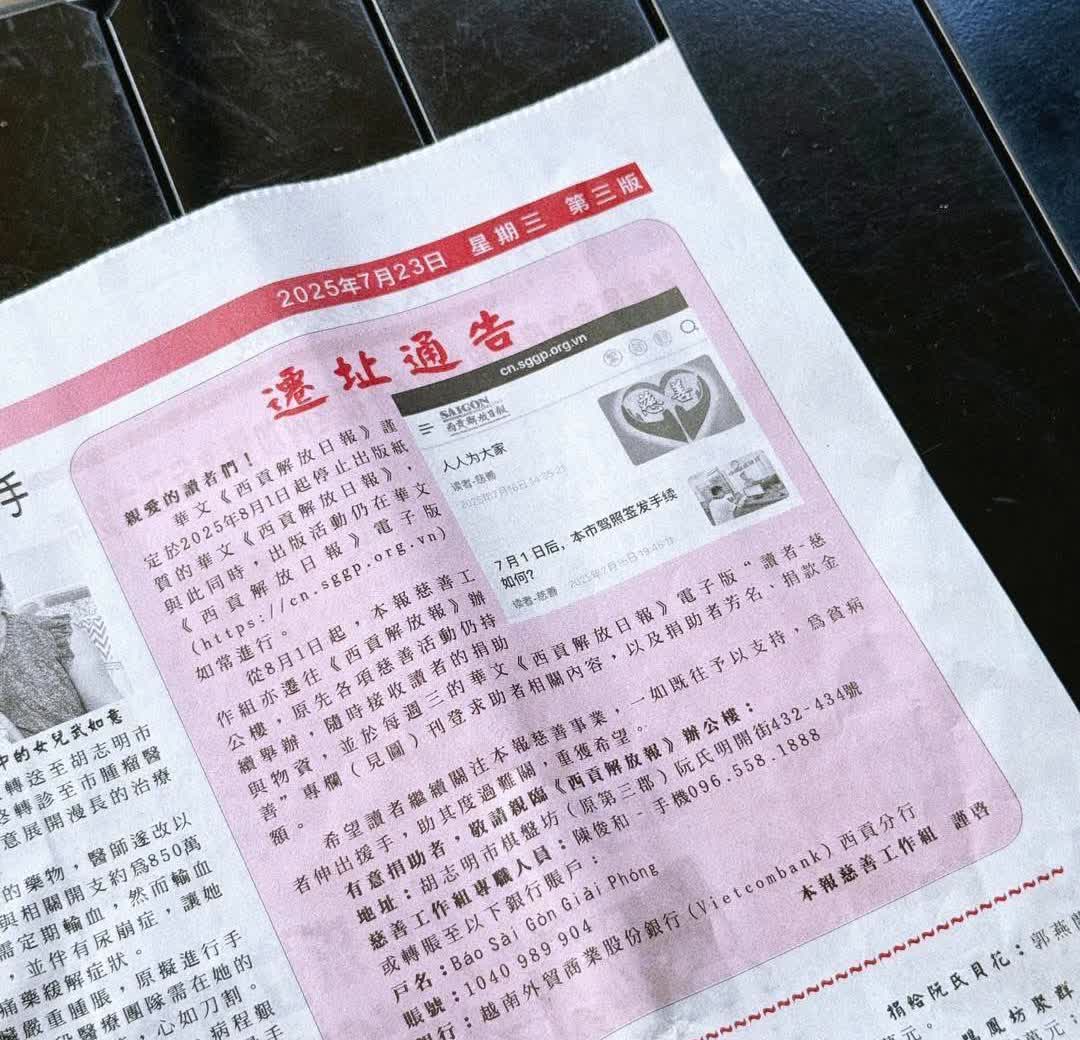 2025年7月23日 星期三 第三版
遷址通告
親愛的讀者們！
華文《西貢解放日報》謹
定於2025年8月1日起停止出版紙
質的華文《西貢解放日報》，
與此同時，出版活動仍在華文
《西貢解放日報》電子版
(https://cn.sggp.org.vn)
如常進行。
從8月1日起，本報慈善工
作組亦遷往《西貢解放報》辦
公樓，原先各項慈善活動仍持
續舉辦，隨時接收讀者的捐助
與物資，並於每週三的華文《西貢解放日報》電子版“讀者-慈
善”專欄（見圖）刊登求助者相關內容，以及捐助者芳名、捐款金
額。
希望讀者繼續關注本報慈善事業，一如既往予以支持，為貧病
者伸出援手，助其度過難關，重獲希望。
有意捐助者，敬請親臨《西貢解放報》辦公樓：
地址：胡志明市棋盤坊（原第三郡）阮氏明開街432-434號
慈善工作組專職人員：陳俊和 - 手機096.558.1888
或轉賬至以下銀行賬戶：
戶名：Báo Sài Gòn Giải Phóng
賬號：1040 989 904
銀行：越南外貿商業股份銀行(Vietcombank)西貢分行
本報慈善工作組 謹啓
cn.sggp.org.vn
SAIGON
西貢解放日報
慈善
人人为大家
读者-慈善
7月1日后，本市驾照签发手续
如何?
读者-慈善
手
中的女兒武如意
轉送至胡志明市
轉診至市腫瘤醫
意展開漫長的治療
的藥物，醫師遂改以
與相關開支約為850萬
需定期輸血，然而輸血
，並伴有尿崩症，讓她
痛藥緩解症狀。
嚴重腫脹，原擬進行手
醫療團隊需在她的
，心如刀割。
病程艱
手
捐給阮氏貝花：郭燕
萬元。
鳳坊聚群
萬元；